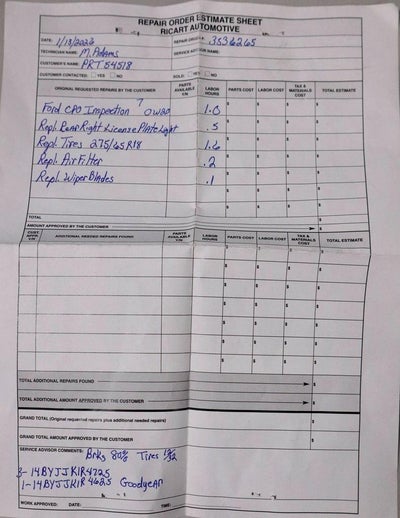 REPAIR ORDER ESTIMATE SHEET
RICART AUTOMOTIVE
DATE: 1/13/2023 REPAIR ORDER #: 3536265
TECHNICIAN NAME: M. Adams SERVICE ADVISOR NAME:
CUSTOMER'S NAME: PRT54518
CUSTOMER CONTACTED: YES NO SOLD: YES NO
ORIGINAL REQUESTED REPAIRS BY THE CUSTOMER PARTS AVAILABLE Y/N LABOR HOURS PARTS COST LABOR COST TAX & MATERIALS COST TOTAL ESTIMATE
Ford CPO Inspection 7 0W20 1.0 $ $ $ $
Repl. Rear Right License Plate Light .5 $ $ $ $
Repl. Tires 275/65R18 1.6 $ $ $ $
Repl. Air Filter .2 $ $ $ $
Repl. Wiper Blades .1 $ $ $ $
TOTAL
AMOUNT APPROVED BY THE CUSTOMER $
CUST. APPR. Y/N ADDITIONAL NEEDED REPAIRS FOUND PARTS AVAILABLE Y/N LABOR HOURS PARTS COST LABOR COST TAX & MATERIALS COST TOTAL ESTIMATE
TOTAL ADDITIONAL REPAIRS FOUND $
TOTAL ADDITIONAL AMOUNT APPROVED BY THE CUSTOMER $
GRAND TOTAL (Original requested repairs plus additional needed repairs) $
GRAND TOTAL AMOUNT APPROVED BY THE CUSTOMER $
SERVICE ADVISOR COMMENTS: Brks 80% Tires
3-14BYJJK1R4725
1-14BYJJK1R4625 Goodyear
WORK APPROVED: DATE: TIME: